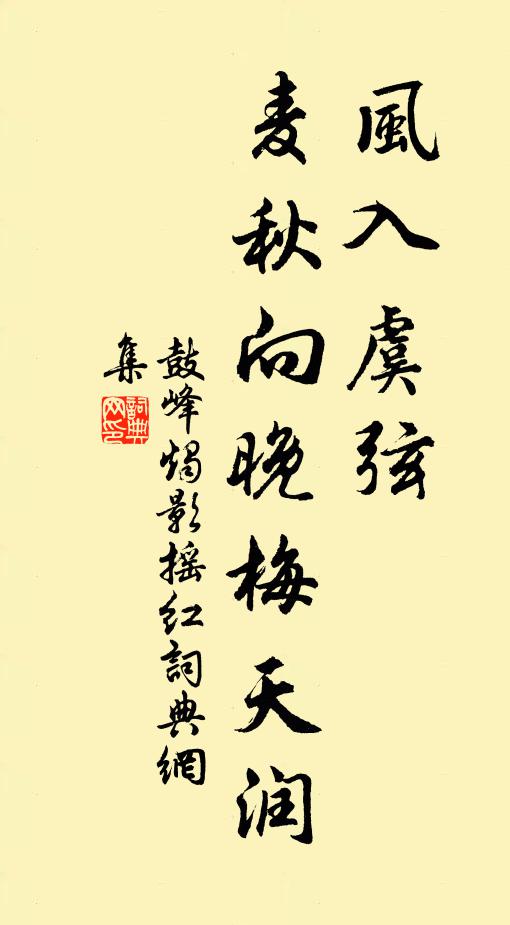 風入虞弦
麦秋向晚梅天润
鼓峰燭影摇红詞典網
集
詞典网印